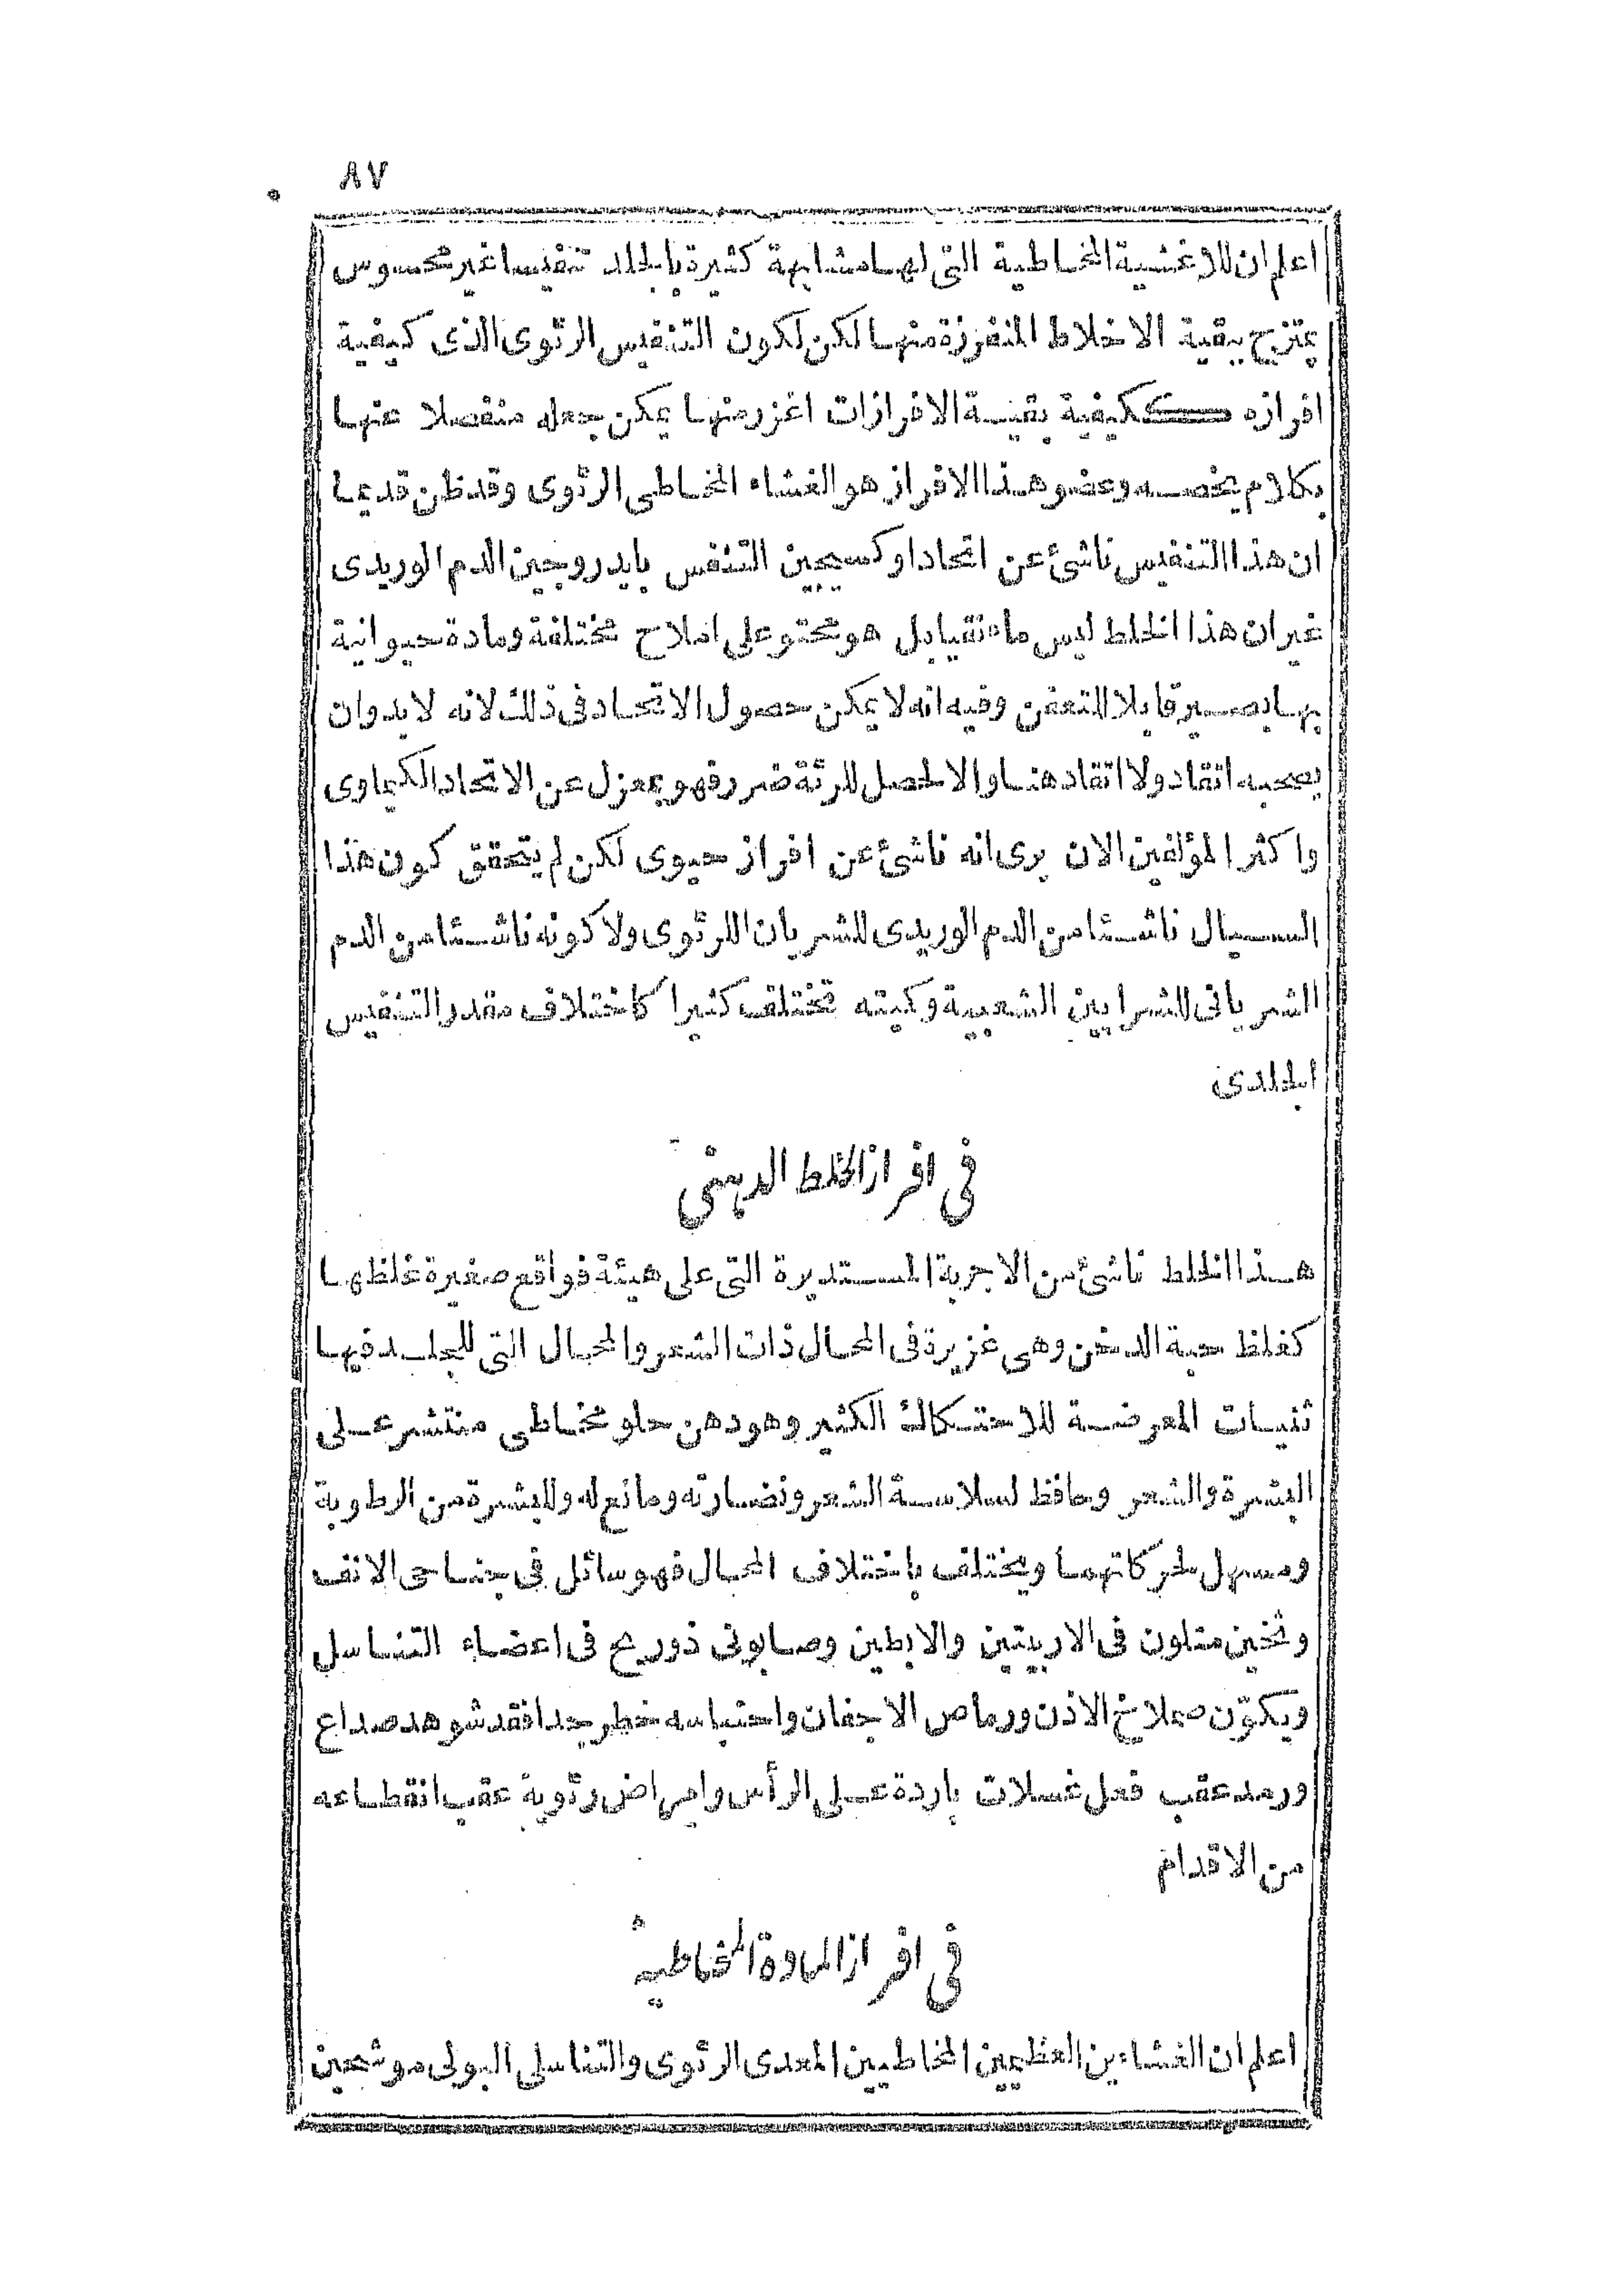 ٨٧
اعلم ان للاغشية المخاطية التى لها مشابهة كثيرة بالجلد تنفيسا غير محسوس
يمتزج ببقية الاخلاط المنفرزة منها لكن لكون التنفيس الرئوى الذى كيفية
افرازه ككيفية بقية الافرازات اغزر منها يمكن جعله منفصلا عنها
بكلام يخصه وعضو هذا الافراز هو الغشاء المخاطى الرئوى وقد ظن قديما
ان هذا التنفيس ناشئ عن اتحاد اوكسيجين التنفس بايدروجين الدم الوريدى
غير ان هذا الخلط ليس ماء نقيا بل هو محتو على املاح مختلفة ومادة حيوانية
بها يصير قابلا للتعفن وفيه انه لا يمكن حصول الاتحاد فى ذلك لانه لا بد وان
يصحبه اتقاد ولا اتقاد هنا والا لحصل للرئة ضرر فهو بمعزل عن الاتحاد الكيماوى
واكثر المؤلفين الان يرى انه ناشئ عن افراز حيوى لكن لم يتحقق كون هذا
السيال ناشئا من الدم الوريدى للشريان الرئوى ولا كونه ناشئا من الدم
الشريانى للشرايين الشعبية وكميته تختلف كثيرا كاختلاف مقدر التنفيس
الجلدى
فى افراز الخلط الدهنى
هذا الخلط ناشئ من الاجربة المستديرة التى على هيئة فواقع صغيرة غلظها
كغلظ حبة الدخن وهى غزيرة فى المحال ذات الشعر والمحال التى للجلد فيها
ثنيات المعرضة للاحتكاك الكثير وهو دهن حلو مخاطى منتشر على
البشرة والشعر وحافظ لسلاسة الشعر ونضارته ومانع له وللبشرة من الرطوبة
ومسهل لحركاتهما ويختلف باختلاف المحال فهو سائل فى جناحى الانف
وثخين متلون فى الاربيتين والابطين وصابونى ذو ريح فى اعضاء التناسل
ويكوّن صملاخ الاذن ورماص الاجفان واحتباسه خطر جدا فقد شوهد صداع
ورمد عقب فعل غسلات باردة على الرأس وامراض رئوية عقب انقطاعه
من الاقدام
فى افراز المادة المخاطية
اعلم ان الغشاءين العظيمين المخاطيين المعدى الرئوى والتناسلى البولى موشحين